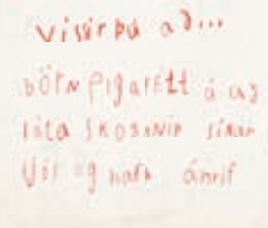 vissir þú að...
börn eiga rétt á að
láta skoðanir sínar
og hafa áhrif